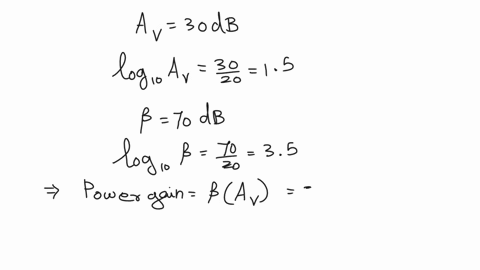 A_V = 30 dB
log₁₀ A_V = 30/20 = 1.5
β = 70 dB
log₁₀ β = 70/20 = 3.5
⇒ Power gain = β(A_V) = -